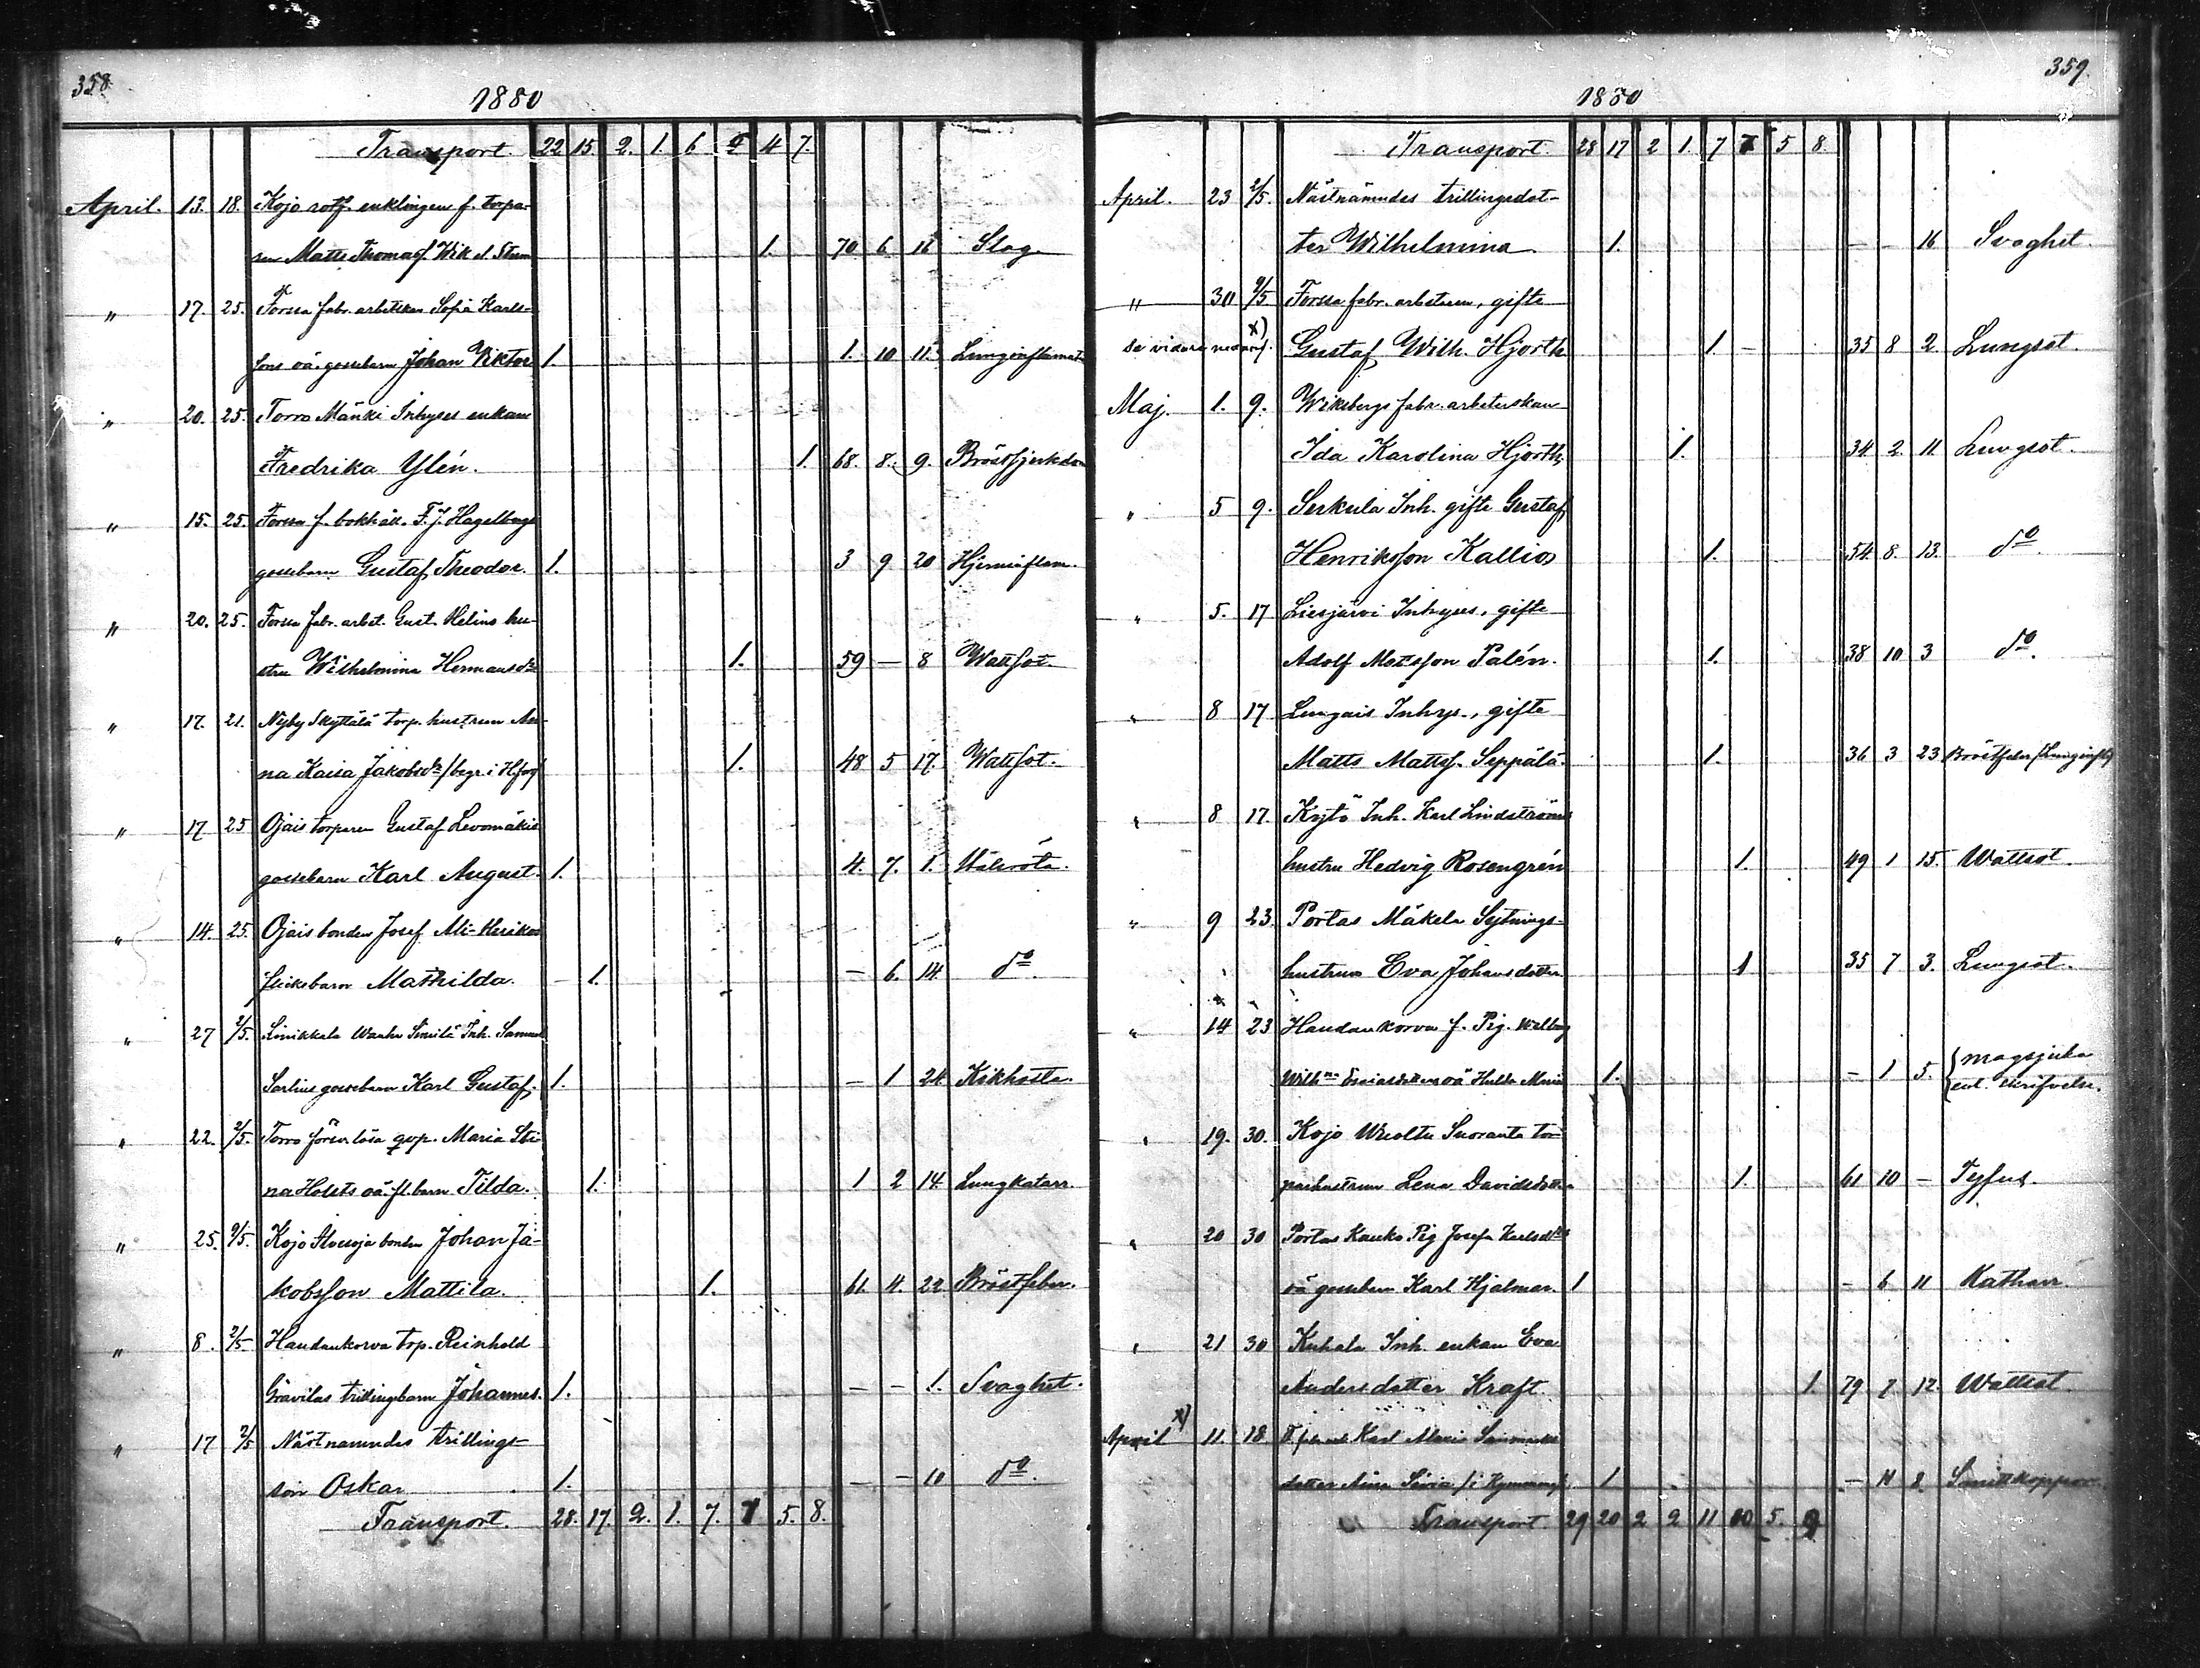 358
1880
Transport. 22 15. 2. 1. 6. 4 7.
April. 13. 18. Kojo rotf. enklingen f. torpa-
ren Matts Thomasf. Wik 1. 70 6 16 Slag
" 17. 25. Forssa fabr. arbetskan Sofia Karls-
sons oä. gossebarn Johan Viktor 1. 1. 10 11.
" 20. 25. Torro Mänki Inhyses enkan
Fredrika Ylén. 1. 68. 8. 9.
" 15. 25. Forssa f. bokhåll. F. J. Hagelbergs
gossebarn Gustaf Theodor. 1. 3 9 20 Hjerninflam.
" 20. 25. Forssa fabr. arbet. Gust. Helins hu-
stru Wilhelmina Hermansdr 1. 59 — 8 Wattsot.
" 17. 21. Nyby Skyttälä torp. hustrun An-
na Kaisa Jakobsdr /begr. i 1. 48 5 17. Wattsot.
" 17 25 Ojais torparen Gustaf Levomäkis
gossebarn Karl August. 1. 4. 7. 1.
" 14. 25. Ojais bonden Josef
flickebarn Mathilda. — 1. — 6. 14. do.
" 27 2/5. Inh. Samuel
gossebarn Karl Gustaf. 1. — 1 24 Kikhosta.
" 22. 2/5. Torro försv. lösa qvp. Maria Sti-
na Holsts oä. fl. barn Tilda. 1. 1 2 14 Lungkatarr
" 25. 9/5. Kojo bonden Johan Ja-
kobsson Mattila. 1. 61. 4. 22 Bröstfeber.
" 8. 2/5 Haudankorva torp. Reinhold
Grävilas trillingbarn Johannes. 1. — — 1. Svaghet.
" 17 2/5 Näst namndes trillings-
son Oskar 1. — — 10 do.
Transport. 28. 17. 2. 1. 7. 7. 5. 8.
359.
1880
Transport. 28 17 2 1. 7 7 5 8.
April. 23 2/5. Nästnämndes trillingsdot-
ter Wilhelmina 1. — — 16 Svaghet.
" 30 9/5 Forssa fabr. arbetaren, gifte
se vidare nedanf. x) Gustaf Wilh. Hjorth 1. 35 8 2. Lungsot.
Maj. 1. 9. Wiksbergs fabr. arbeterskan
Ida Karolina Hjorth, 1. 34 2. 11 Lungsot.
" 5 9. Serkula Inh. gifte Gustaf
Henriksson Kallios 1. 54 8. 13. do.
" 5. 17 Liesjärvi Inhyses, gifte
Adolf Matsson Palén. 1. 38 10 3 do.
" 8 17 Lungais Inhys., gifte
Matts Mattsf. Seppälä. 1. 36 3 23
" 8 17. Köjtö Inh. Karl Lindströms
hustru Hedvig Rosengrén 1. 49 1 15. Wattsot.
" 9 23. Portas Mäkelä Sytnings-
hustrun Eva Johansdotter 1 35 7 3. Lungsot.
" 14 23 Haudankorva f. Pig.
oä Hulda Maria 1. — 1 5. { magsjuka
enl. skrifvelse.
" 19. 30. Kojo Suoranta tor-
parhustrun Lena Davidsdotter 1. 61 10 — Tyfus.
" 20 30 Portas Kauko Pig Josefa Karlsdrs
oä gossebarn Karl Hjalmar. 1 — 6 11 Katharr.
" 21 30 Kuhala Inh. enkan Eva
Andersdotter Kraft. 1 79 7 12. Wattsot.
April x) 11. 18. Karl
dotter 1 — 11 8. Smittkoppor.
Transport. 29 20 2 2 11 10 5. 9